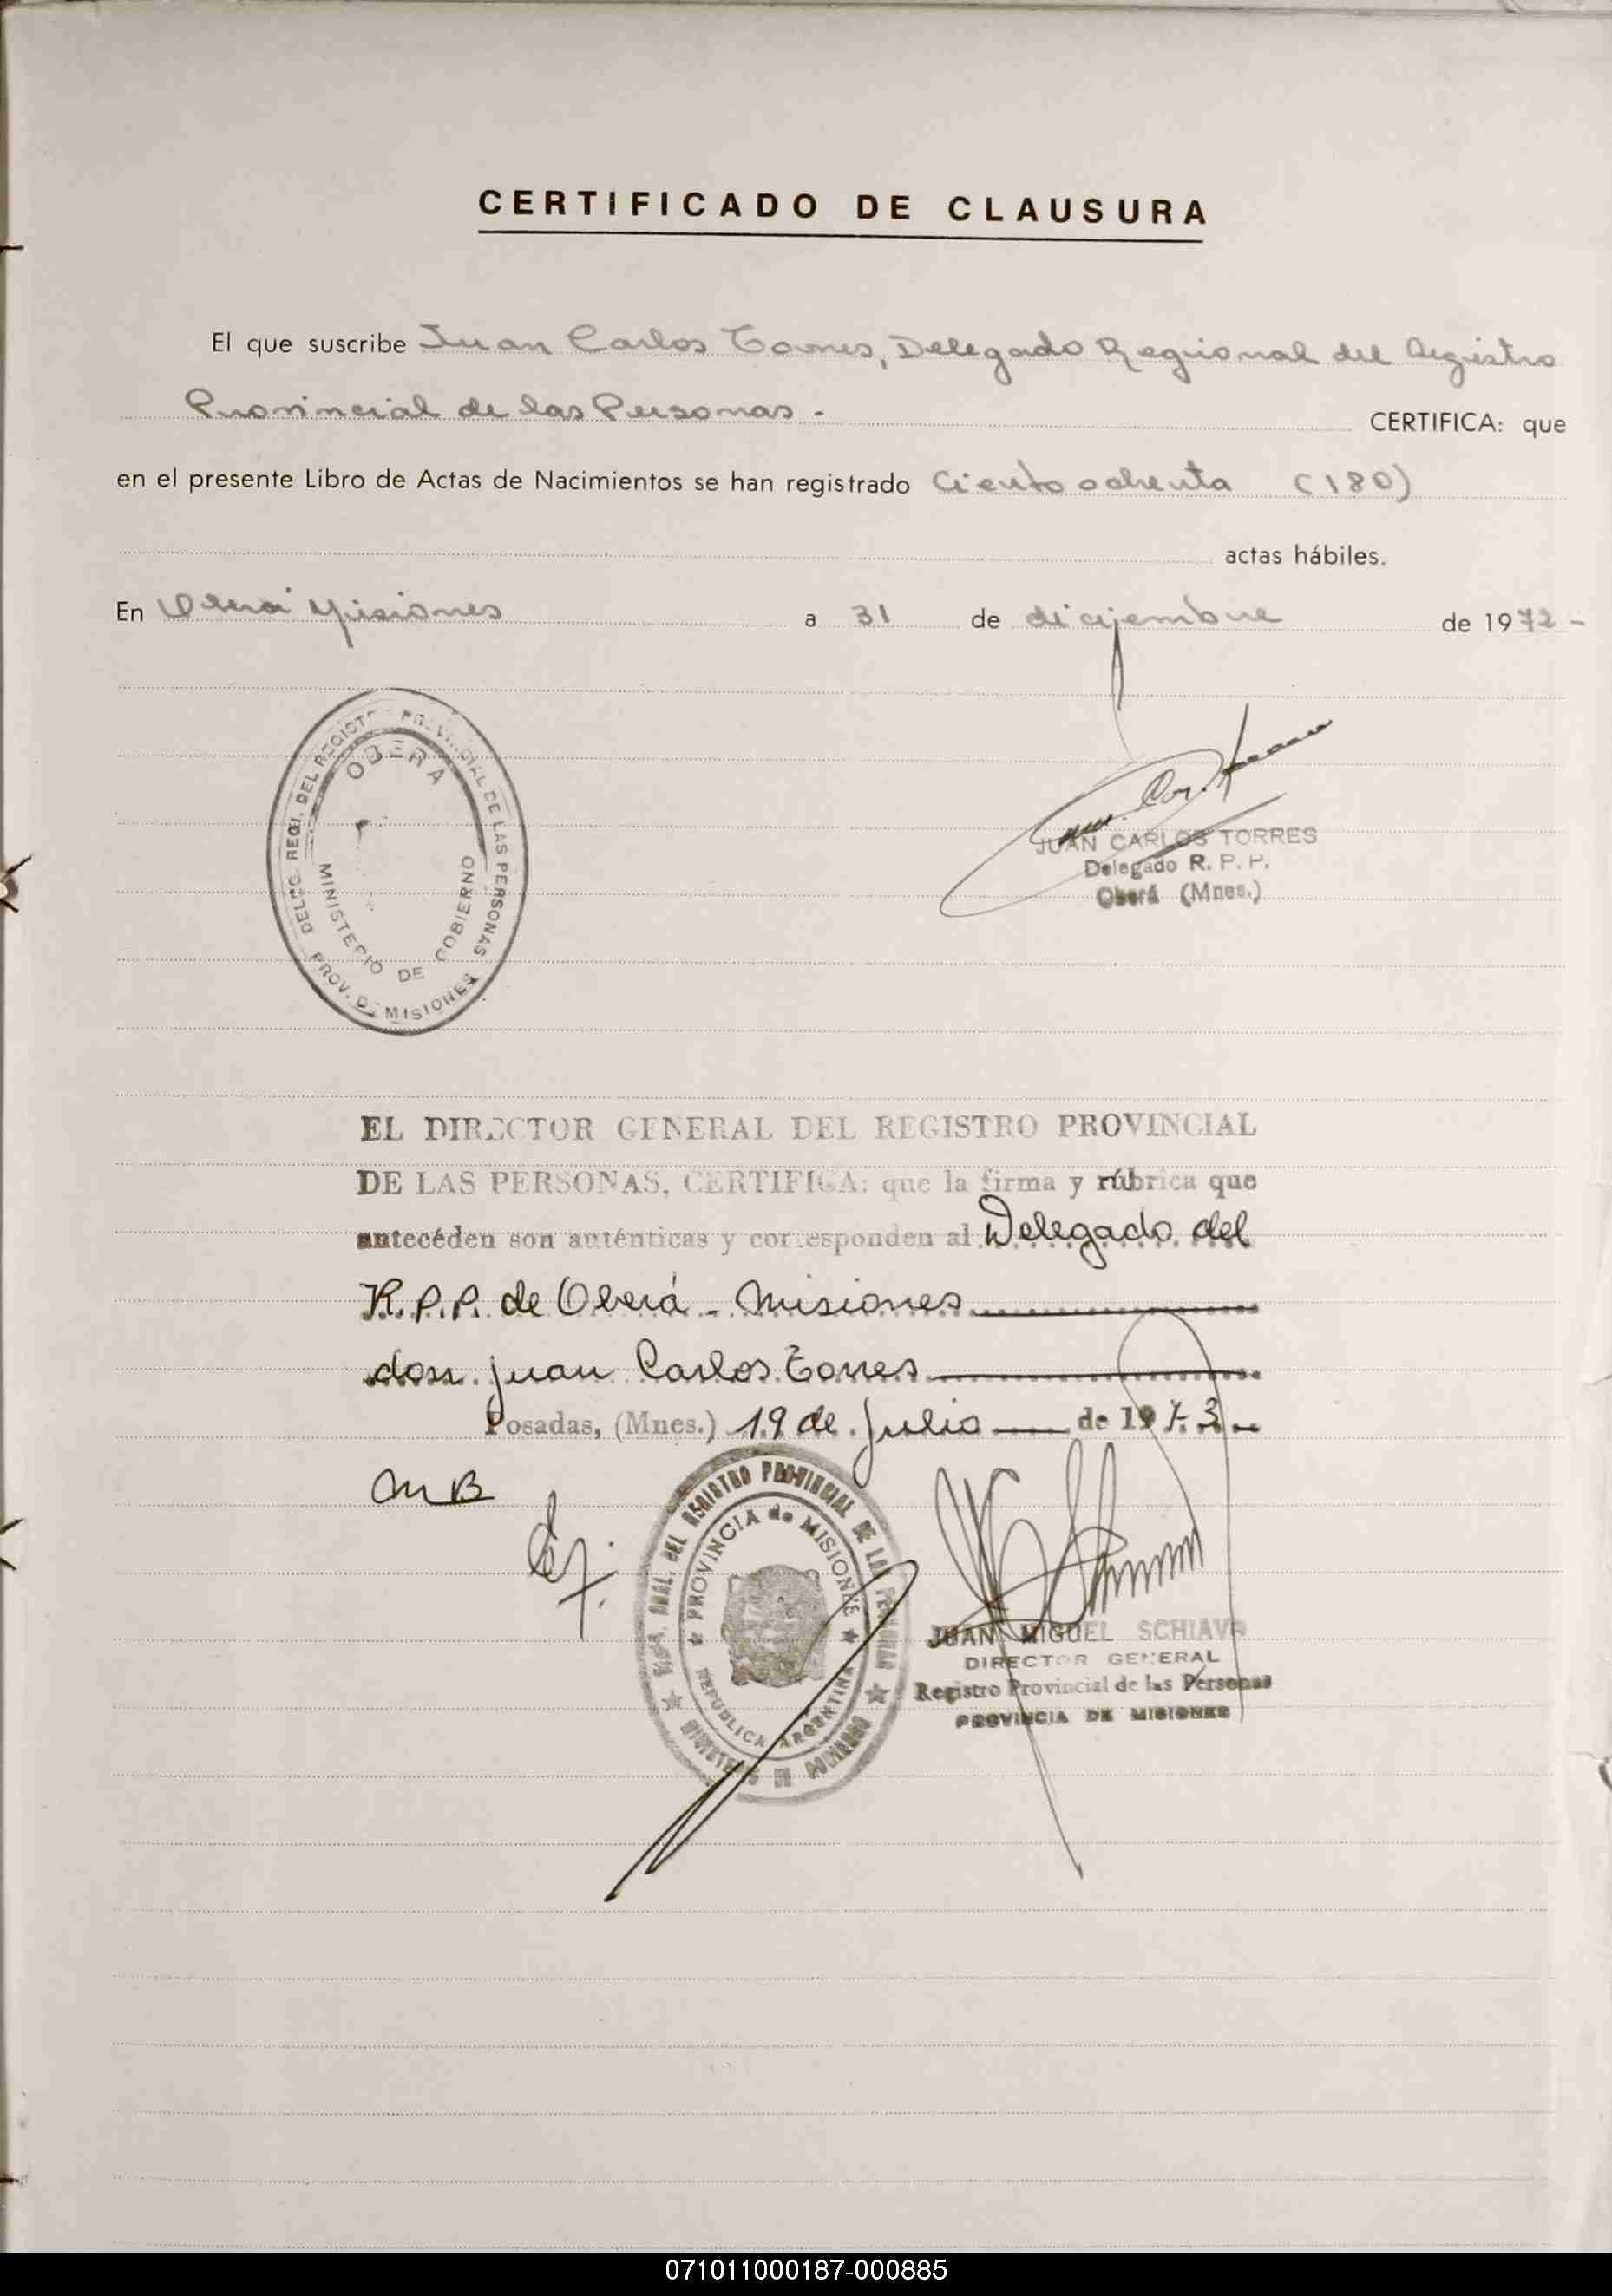 CERTIFICADO DE CLAUSURA
El que suscribe Juan Carlos Torres, Delegado Regional del Registro
Provincial de las Personas. - CERTIFICA: que
en el presente Libro de Actas de Nacimientos se han registrado Ciento ochenta (180)
actas hábiles.
En Oberá Misiones a 31 de diciembre de 1972-
DELEG. REGI. DEL REGISTRO PROVINCIAL DE LAS PERSONAS
OBERA
MINISTERIO DE GOBIERNO
PROV. DE MISIONES
JUAN CARLOS TORRES
Delegado R. P. P.
Oberá (Mnes.)
EL DIRECTOR GENERAL DEL REGISTRO PROVINCIAL
DE LAS PERSONAS, CERTIFICA: que la firma y rúbrica que
antecéden son auténticas y corresponden al Delegado del
R.P.P. de Oberá - Misiones
don Juan Carlos Torres
Posadas, (Mnes.) 19 de Julio de 1973-
MB
GRAL. DEL REGISTRO PROVINCIAL DE LAS PERSONAS
PROVINCIA de MISIONES
REPUBLICA ARGENTINA
MINISTERIO DE GOBIERNO
JUAN MIGUEL SCHIAVO
DIRECTOR GENERAL
Registro Provincial de las Personas
PROVINCIA DE MISIONES
071011000187-000885